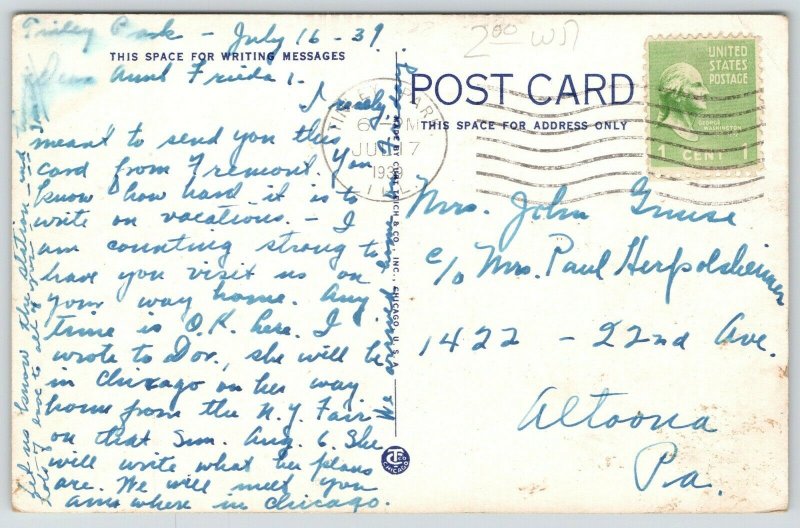 Tinley Park - July 16 - 39.
THIS SPACE FOR WRITING MESSAGES
Aunt Frieda,
I really
meant to send you this
card from Fremont. You
know how hard it is to
write on vacations. - I
am counting strong to
have you visit us on
your way home. Any
time is O.K. here. I
wrote to Dor., she will be
in Chicago on her way
home from the N.Y. Fair
on that Sun. Aug. 6. She
will write what her plans
are. We will meet you
anywhere in Chicago.
Let us know the station and
lots of love to all of
We arrived home
MADE BY CURT TEICH & CO., INC., CHICAGO, U.S.A.
CT CO
CHICAGO
2.00
POST CARD
THIS SPACE FOR ADDRESS ONLY
TINLEY PARK
JUL 17
1939
ILL.
UNITED
STATES
POSTAGE
GEORGE
WASHINGTON
1 CENT 1
Mrs. John Gruse
c/o Mrs. Paul Herpolsheimer
1422 - 22nd Ave.
Altoona
Pa.